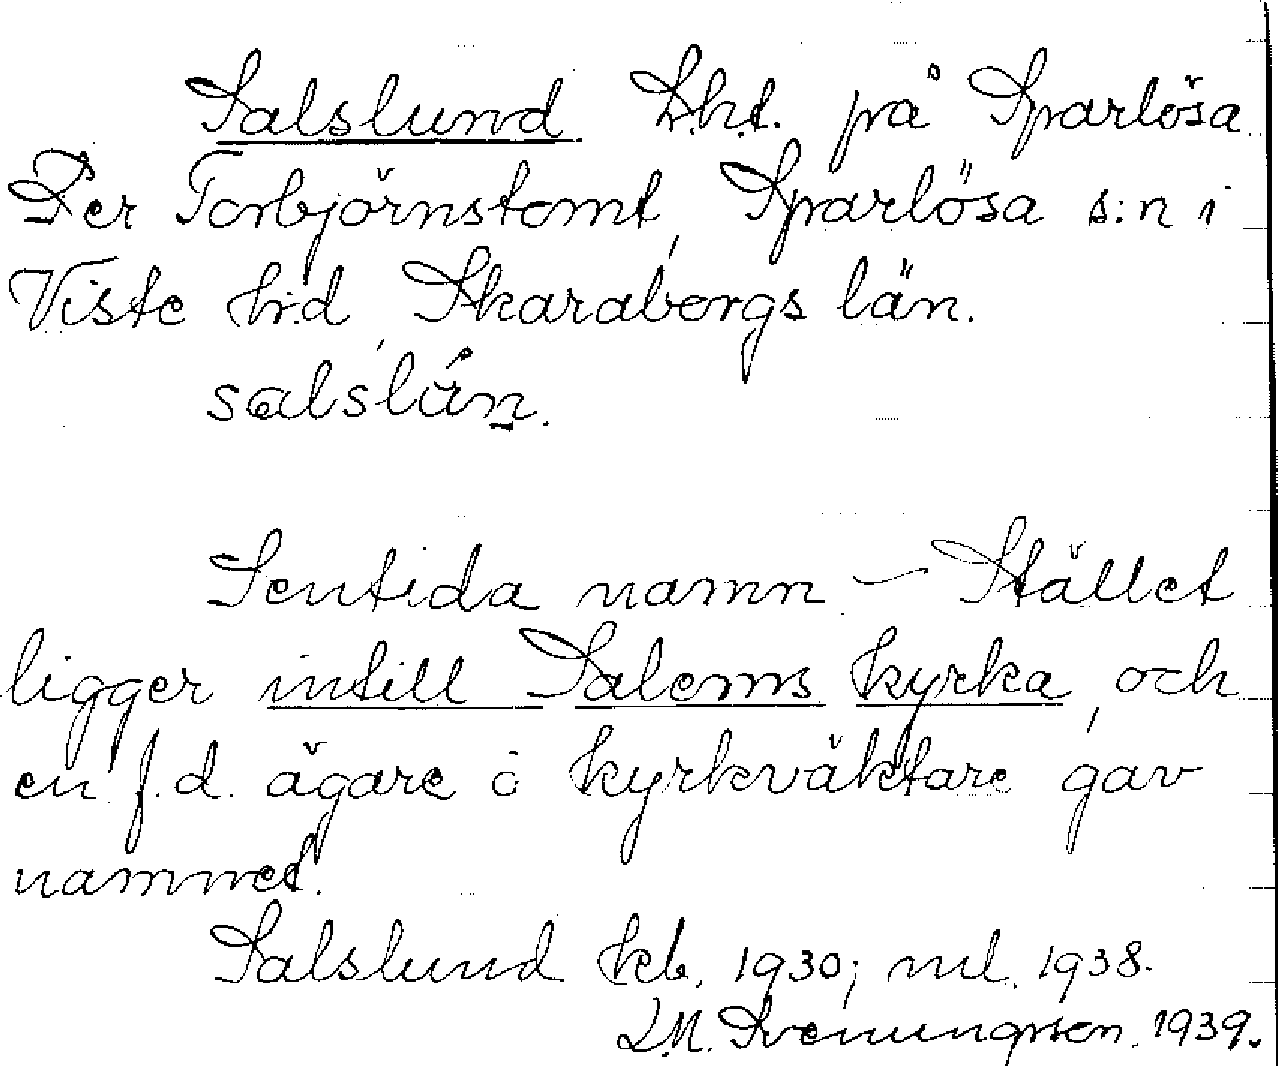 Salslund L.h.t. på Sparlösa
Per Torbjörnstomt, Sparlösa s:n i
Viste hd, Skaraborgs län.
salslún.
Sentida namn – Stället
ligger intill Salems kyrka, och
en f.d. ägare o kyrkväktare gav
namnet.
Salslund kb. 1930; ml. 1938.
Svenungsson. 1939.